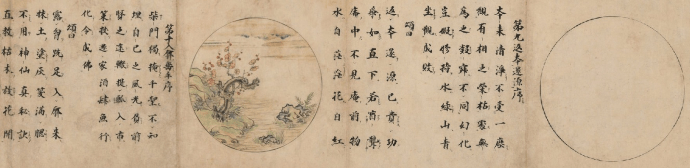 第九返本還源序
本来清淨不受一塵
觀有相之榮枯處無
為之凝寂不同幻化
豈假修持水綠山青
坐觀成敗
頌曰
返本還源已費功
爭如直下若盲聾
庵中不見庵前物
水自茫茫花自紅
第十入鄽垂手序
柴門獨掩千聖不知
埋自己之風光負前
賢之途轍提瓢入市
策杖還家酒肆魚行
化令成佛
頌曰
露胸跣足入鄽来
抹土塗灰笑滿腮
不用神仙真秘訣
直教枯木放花開